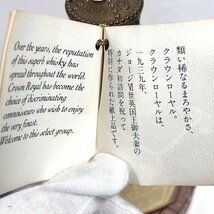 Over the years, the reputation
of this superb whisky has
spread throughout the world.
Crown Royal has become the
choice of discriminating
connoisseurs who wish to enjoy
the very finest.
Welcome to this select group.
類い稀なるまろやかさ、
クラウン ローヤル。
クラウン ローヤルは、
一九三九年、
ジョージⅥ世英国王御夫妻の
カナダ初訪問を祝って
特別に作られた献上品です。